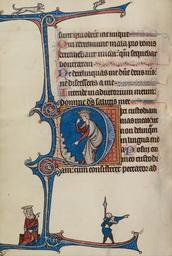 sunt qui oderunt me inique
Qui retribuunt mala pro bonis
detrahebant michi qm sequebar
bonitatem
Ne derelinquas me dne deus ms
ne discesseris a me
Intende in adiutorium meum
domine ds salutis mee
Dixi custodiam
uias meas ut
non delinqm
in lingua mea
Posui ori
meo custodi
am cum consisteret peccator ad